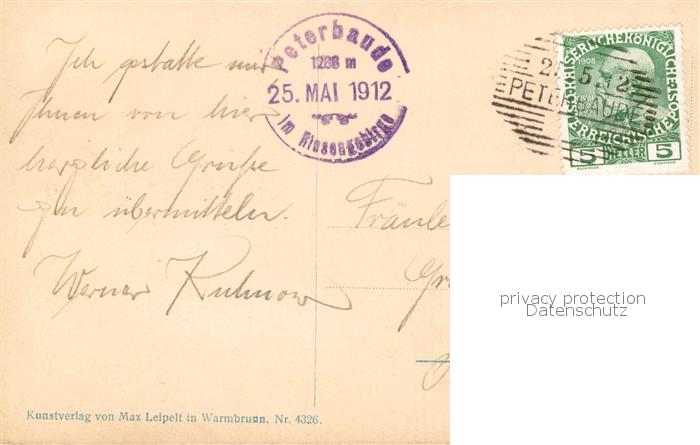 Ich gestatte mir
Ihnen von hier
herzliche Grüße
zu übermitteln.
Werner Kuhnow
Peterbaude
1288 m
25. MAI 1912
im Riesengebirge
5 12
PETERBAUDE
KAISERLICHE KÖNIGLICHE
1908
ÖSTERREICHISCHE POST
5 HELLER 5
Fräule
privacy protection
Datenschutz
Kunstverlag von Max Leipelt in Warmbrunn. Nr. 4326.